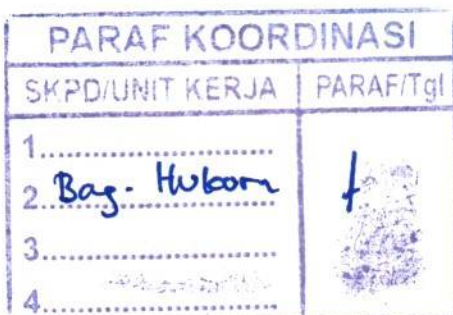 PARAF KOORDINASI
SKPD/UNIT KERJA PARAF/Tgl
1..............................
2. Bag. Hukum
3..............................
4..............................